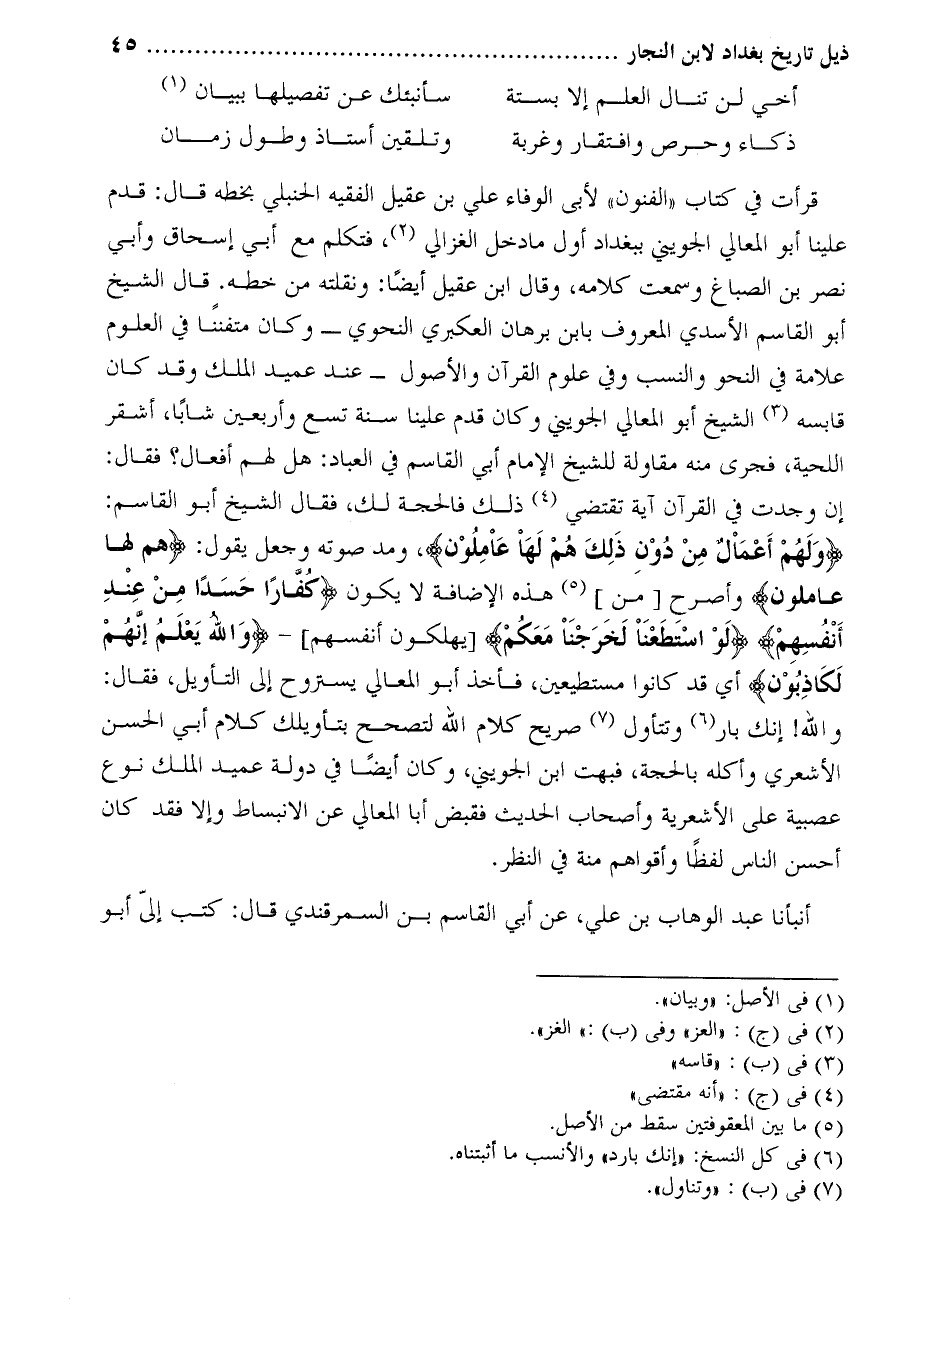 ذيل تاريخ بغداد لابن النجار ........................................................... ٤٥
أخي لـن تنـال العلـم إلا بسـتة سـأنبئك عـن تفصيلهـا ببيـان (١)
ذكـاء وحـرص وافتقـار وغربة وتـلـقين أسـتـاذ وطـول زمـان
قرأت في كتاب «الفنون» لأبى الوفاء علي بن عقيل الفقيه الحنبلي بخطه قـال: قـدم
علينا أبو المعالي الجويني ببغداد أول مادخل الغزالي (٢)، فتكلم مع أبـي إسـحاق وأبـي
نصر بن الصباغ وسمعت كلامه، وقال ابن عقيل أيضًا: ونقلته من خطـه. قـال الشـيخ
أبو القاسم الأسدي المعروف بابن برهان العكبري النحوي ــ وكـان متفننًـا في العلوم
علامة في النحو والنسب وفي علوم القرآن والأصول ــ عنـد عميـد الملـك وقـد كـان
قابسه (٣) الشيخ أبو المعالي الجويني وكان قدم علينا سـنة تسـع وأربعـين شـابًا، أشـقر
اللحية، فجرى منه مقاولة للشيخ الإمام أبي القاسم في العباد: هل لهـم أفعـال؟ فقـال:
إن وجدت في القرآن آية تقتضي (٤) ذلـك فالحجـة لـك، فقـال الشـيخ أبـو القاسـم:
﴿وَلَهُمْ أَعْمَالٌ مِنْ دُوْنِ ذَلِكَ هُمْ لَهَا عَامِلُوْن﴾، ومد صوته وجعل يقول: ﴿هم لها
عـاملون﴾ وأصـرح [ مـن ] (٥) هـذه الإضافـة لا يكـون ﴿كُفَّارًا حَسَدًا مِـنْ عِنْـدِ
أَنْفُسِهِمْ﴾ ﴿لَوْ اسْتَطَعْنَا لَخَرَجْنَا مَعَكُمْ﴾ [يهلكـون أنفسـهم] - ﴿وَاللهُ يَعْلَـمُ إِنَّهُـمْ
لَكَاذِبُوْن﴾ أي قد كانوا مستطيعين، فـأخذ أبـو المعالي يسـتروح إلى التـأويل، فقـال:
والله! إنك بار(٦) وتتأول (٧) صريح كلام الله لتصحـح بتـأويلك كـلام أبـي الحسـن
الأشعري وأكله بالحجة، فبهت ابن الجويني، وكان أيضًـا في دولـة عميـد الملـك نـوع
عصبية على الأشعرية وأصحاب الحديث فقبض أبا المعالي عن الانبساط وإلا فقد كان
أحسن الناس لفظًا وأقواهم منة في النظر.
أنبأنا عبد الوهاب بن علي، عن أبي القاسم بـن السـمرقندي قـال: كتـب إليّ أبـو
(١) فى الأصل: «وبيان».
(٢) فى (ج) : «العز» وفى (ب) :» الغز».
(٣) فى (ب) : «قاسه»
(٤) فى (ج) : «أنه مقتضى»
(٥) ما بين المعقوفتين سقط من الأصل.
(٦) فى كل النسخ: «إنك بارد» والأنسب ما أثبتناه.
(٧) فى (ب) : «وتناول».